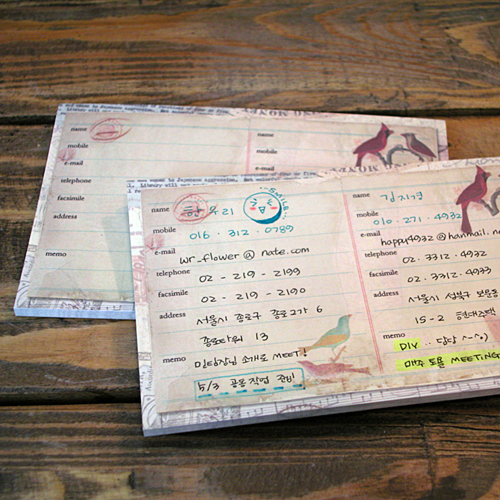 name
mobile
e-mail
telephone
facsimile
address
memo
name
mobile
e-mail
name 한우리
SMILE
mobile 016 · 312 · 0789
e-mail wr_flower@nate.com
telephone 02 - 219 - 2199
facsimile 02 - 219 - 2190
address 서울시 종로구 종로2가 6
종로타워 13
memo 팀장님 소개로 MEET!
5/3 공동작업 준비!
name 김지영
mobile 010 · 271 · 4932
e-mail happy4932@hanmail.ne
telephone 02 · 3312 · 4932
facsimile 02 · 3312 · 4933
address 서울시 성북구
15-2 현대주택
memo DIY .. 담당 ~^^)
MEETING